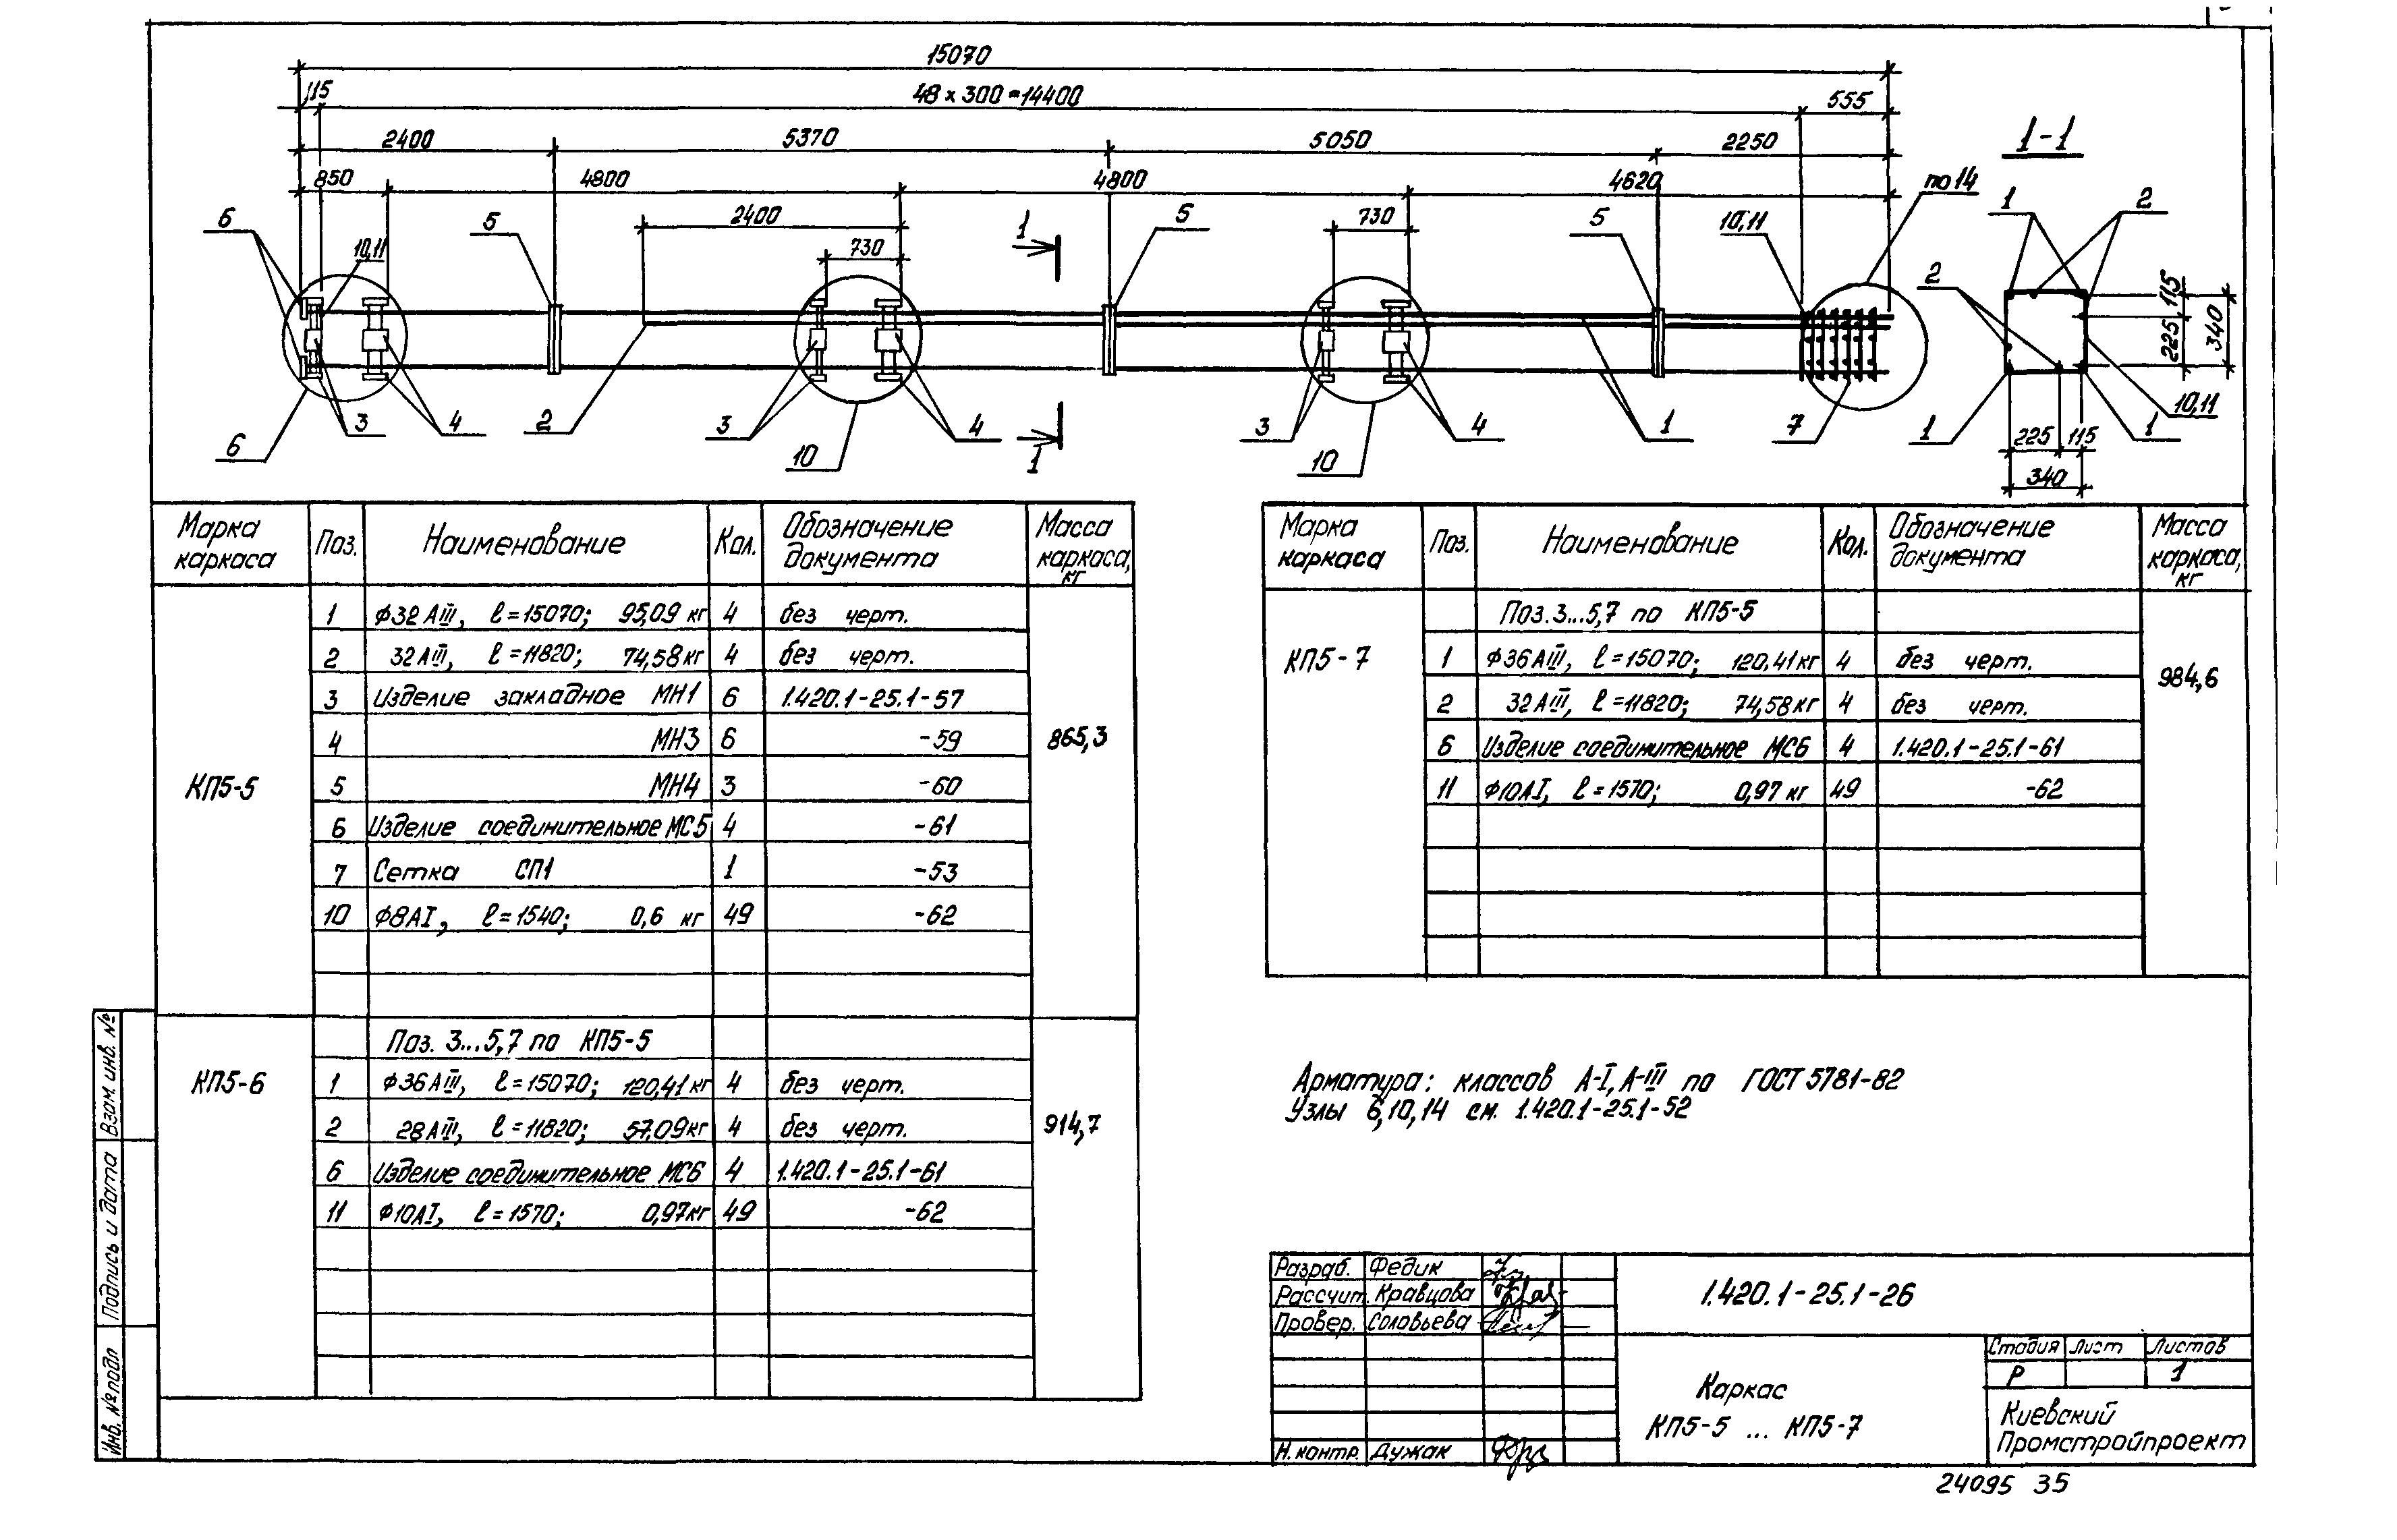 15070
115
48 x 300 = 14400
555
2400
5370
5050
2250
1-1
850
4800
4800
4620
по 14
6
5
2400
730
1
5
730
5
10,11
1
2
10,11
2
115
225
340
10,11
6
3
4
2
3
10
4
1
3
10
4
1
7
1
225
115
1
340
Марка каркаса
Поз.
Наименование
Кол.
Обозначение документа
Масса каркаса, кг
КП5-5
865,3
1 ф32АIII, ℓ=15070; 95,09 кг 4 без черт.
2 32АIII, ℓ=11820; 74,58 кг 4 без черт.
3 Изделие закладное МН1 6 1.420.1-25.1-57
4 МН3 6 -59
5 МН4 3 -60
6 Изделие соединительное МС5 4 -61
7 Сетка СП1 1 -53
10 ф8АI, ℓ=1540; 0,6 кг 49 -62
КП5-6
914,7
Поз. 3...5,7 по КП5-5
1 ф36АIII, ℓ=15070; 120,41 кг 4 без черт.
2 28АIII, ℓ=11820; 57,09кг 4 без черт.
6 Изделие соединительное МС6 4 1.420.1-25.1-61
11 ф10АI, ℓ=1570; 0,97кг 49 -62
Марка каркаса
Поз.
Наименование
Кол.
Обозначение документа
Масса каркаса, кг
КП5-7
984,6
Поз. 3...5,7 по КП5-5
1 ф36АIII, ℓ=15070; 120,41кг 4 без черт.
2 32АIII, ℓ=11820; 74,58кг 4 без черт.
6 Изделие соединительное МС6 4 1.420.1-25.1-61
11 ф10АI, ℓ=1570; 0,97 кг 49 -62
Арматура: классов А-I, А-III по ГОСТ 5781-82
Узлы 6,10,14 см. 1.420.1-25.1-52
Взам. инв. №
Подпись и дата
Инв. № подл
Разраб. Федик
Рассчит. Кравцова
Провер. Соловьева
Н. контр. Дужак
1.420.1-25.1-26
Каркас
КП5-5 ... КП5-7
Стадия Лист Листов
Р 1
Киевский
Промстройпроект
24095 35